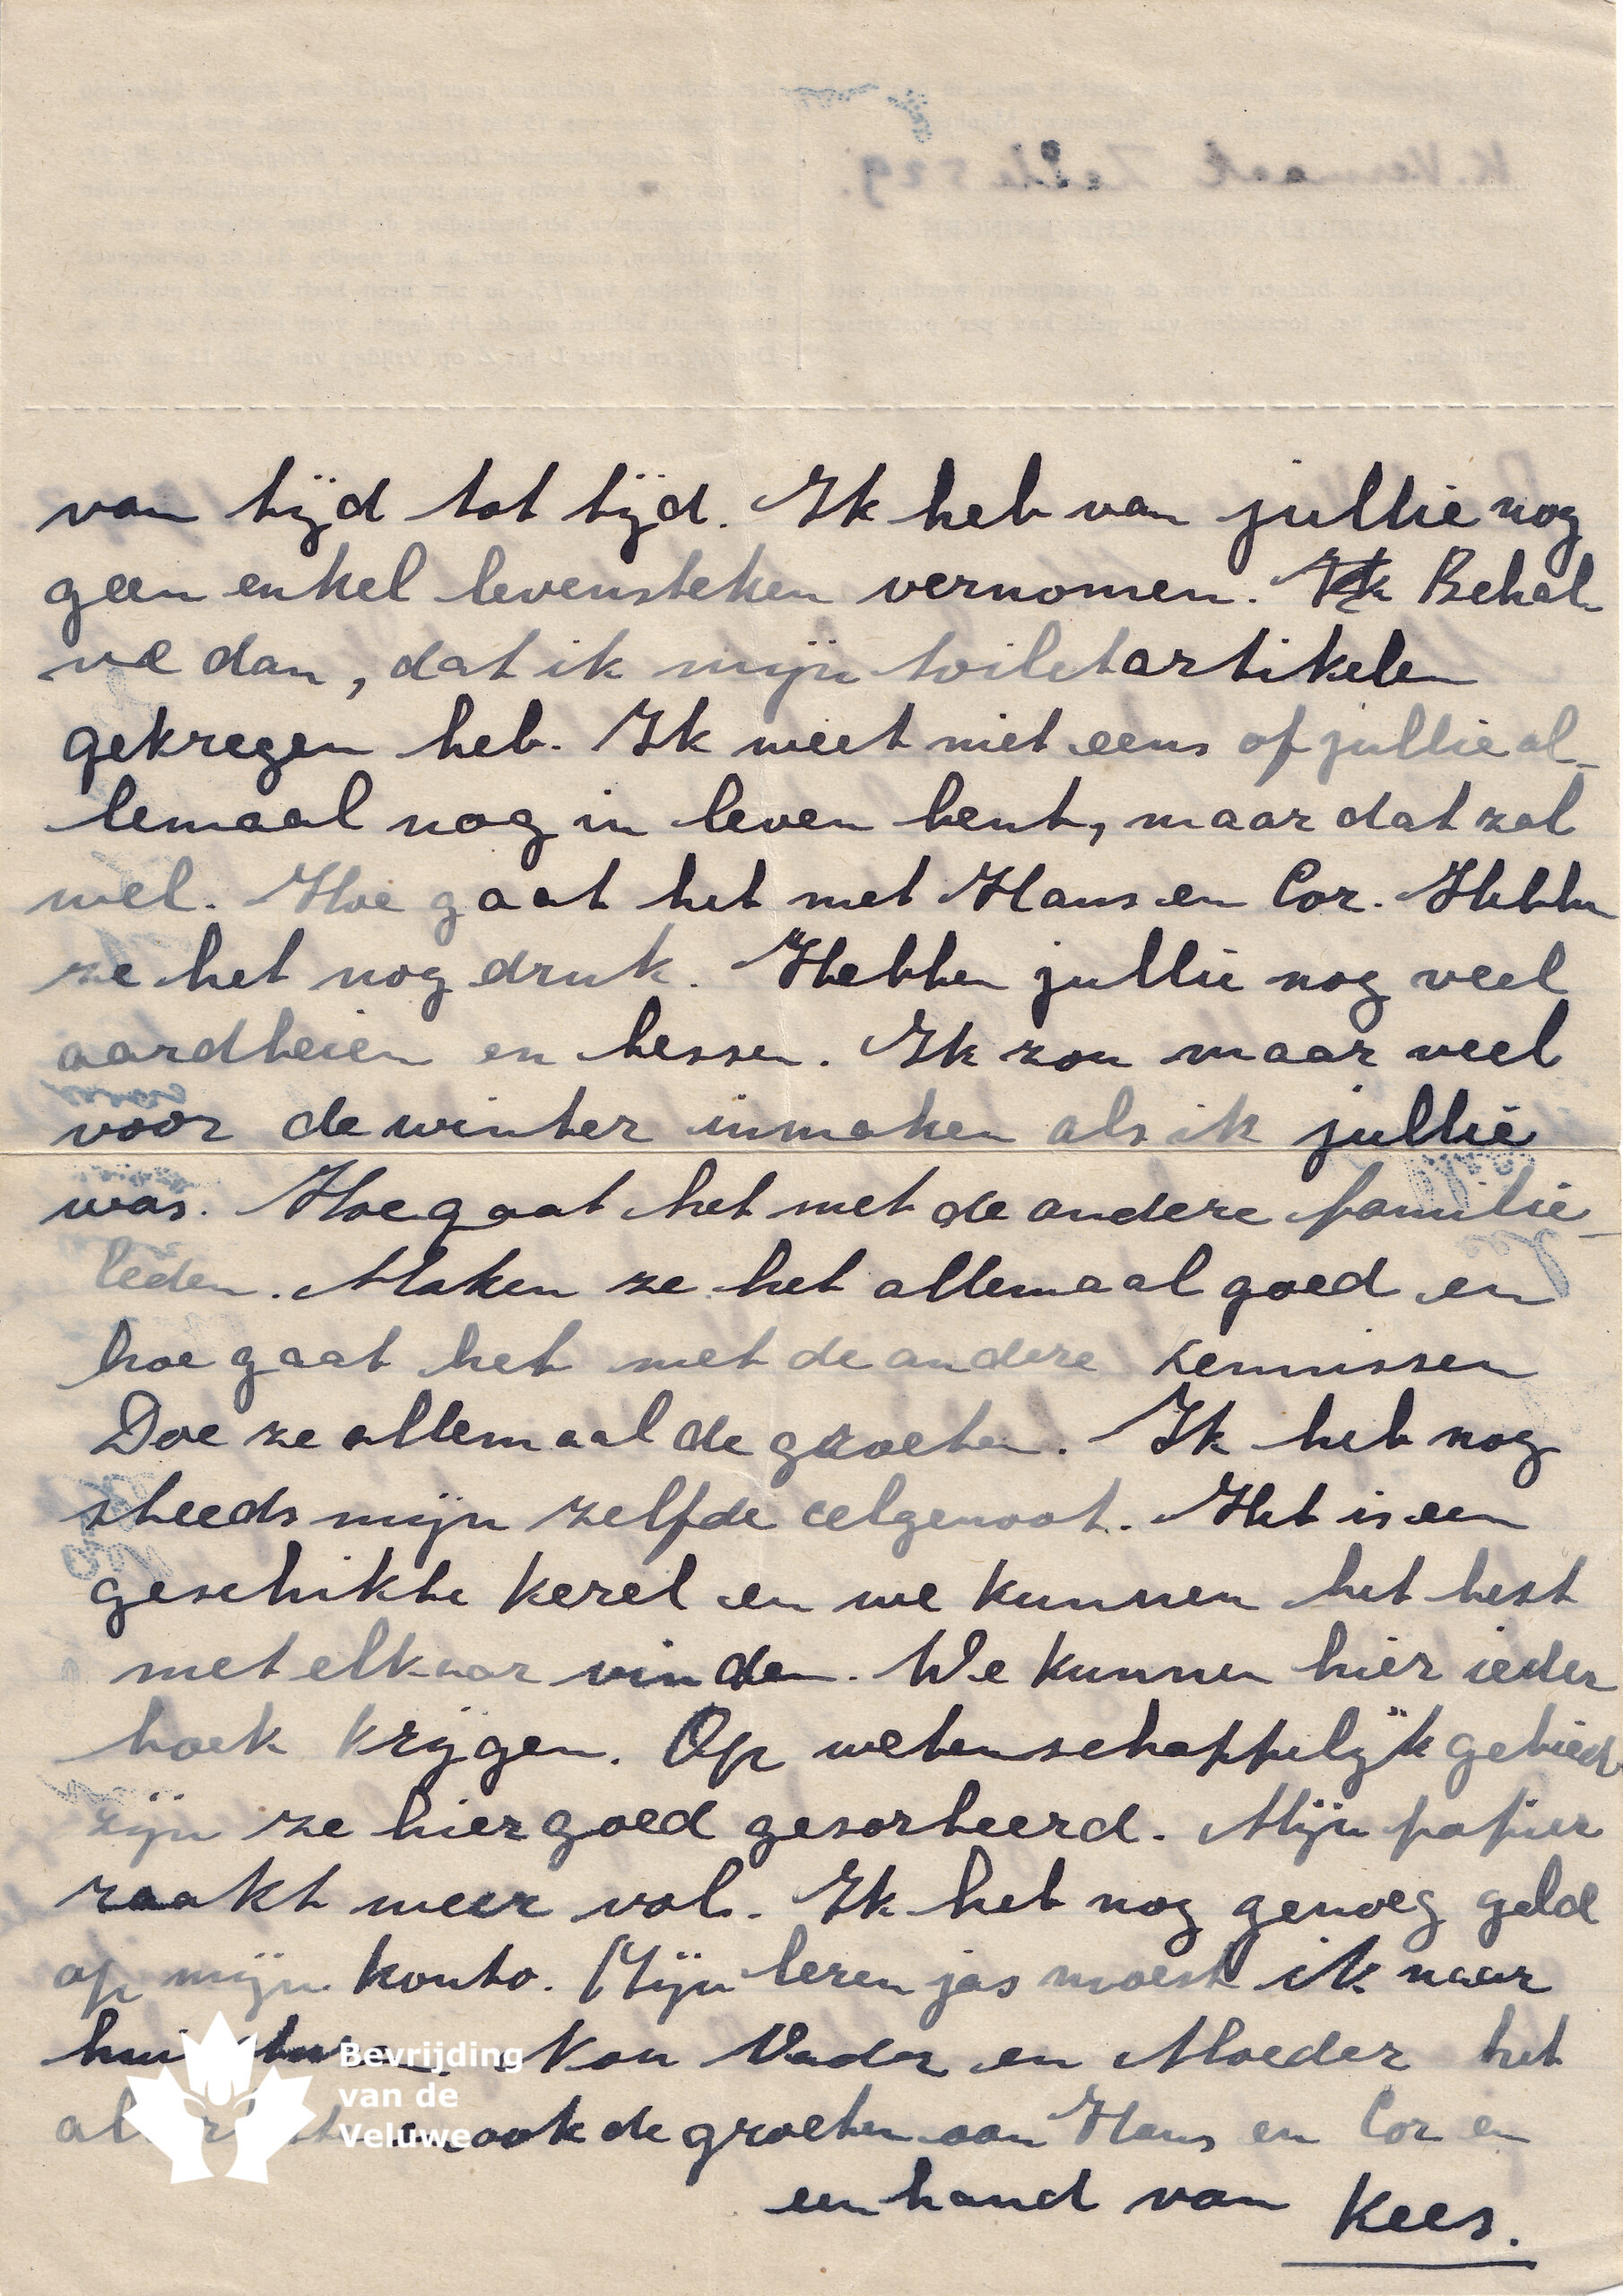 van tijd tot tijd. Ik heb van jullie nog
geen enkel levensteken vernomen. Behal-
ve dan, dat ik mijn toiletartikelen
gekregen heb. Ik weet niet eens of jullie al-
lemaal nog in leven bent, maar dat zal
wel. Hoe gaat het met Hans en Cor. Hebben
ze het nog druk. Hebben jullie nog veel
aardbeien en bessen. Ik zou maar veel
voor de winter inmaken als ik jullie
was. Hoe gaat het met de andere familie-
leden. Maken ze het allemaal goed en
hoe gaat het met de andere kennissen
Doe ze allemaal de groeten. Ik heb nog
steeds mijn zelfde celgenoot. Het is een
geschikte kerel en we kunnen het best
met elkaar vinden. We kunnen hier ieder
boek krijgen. Op wetenschappelijk gebied
zijn ze hier goed gesorteerd. Mijn papier
raakt weer vol. Ik heb nog genoeg geld
op mijn konto. Mijn leren jas moest ik naar
Nou Vader en Moeder het
ook de groeten aan Hans en Cor en
een hand van Kees.
Bevrijding
van de
Veluwe